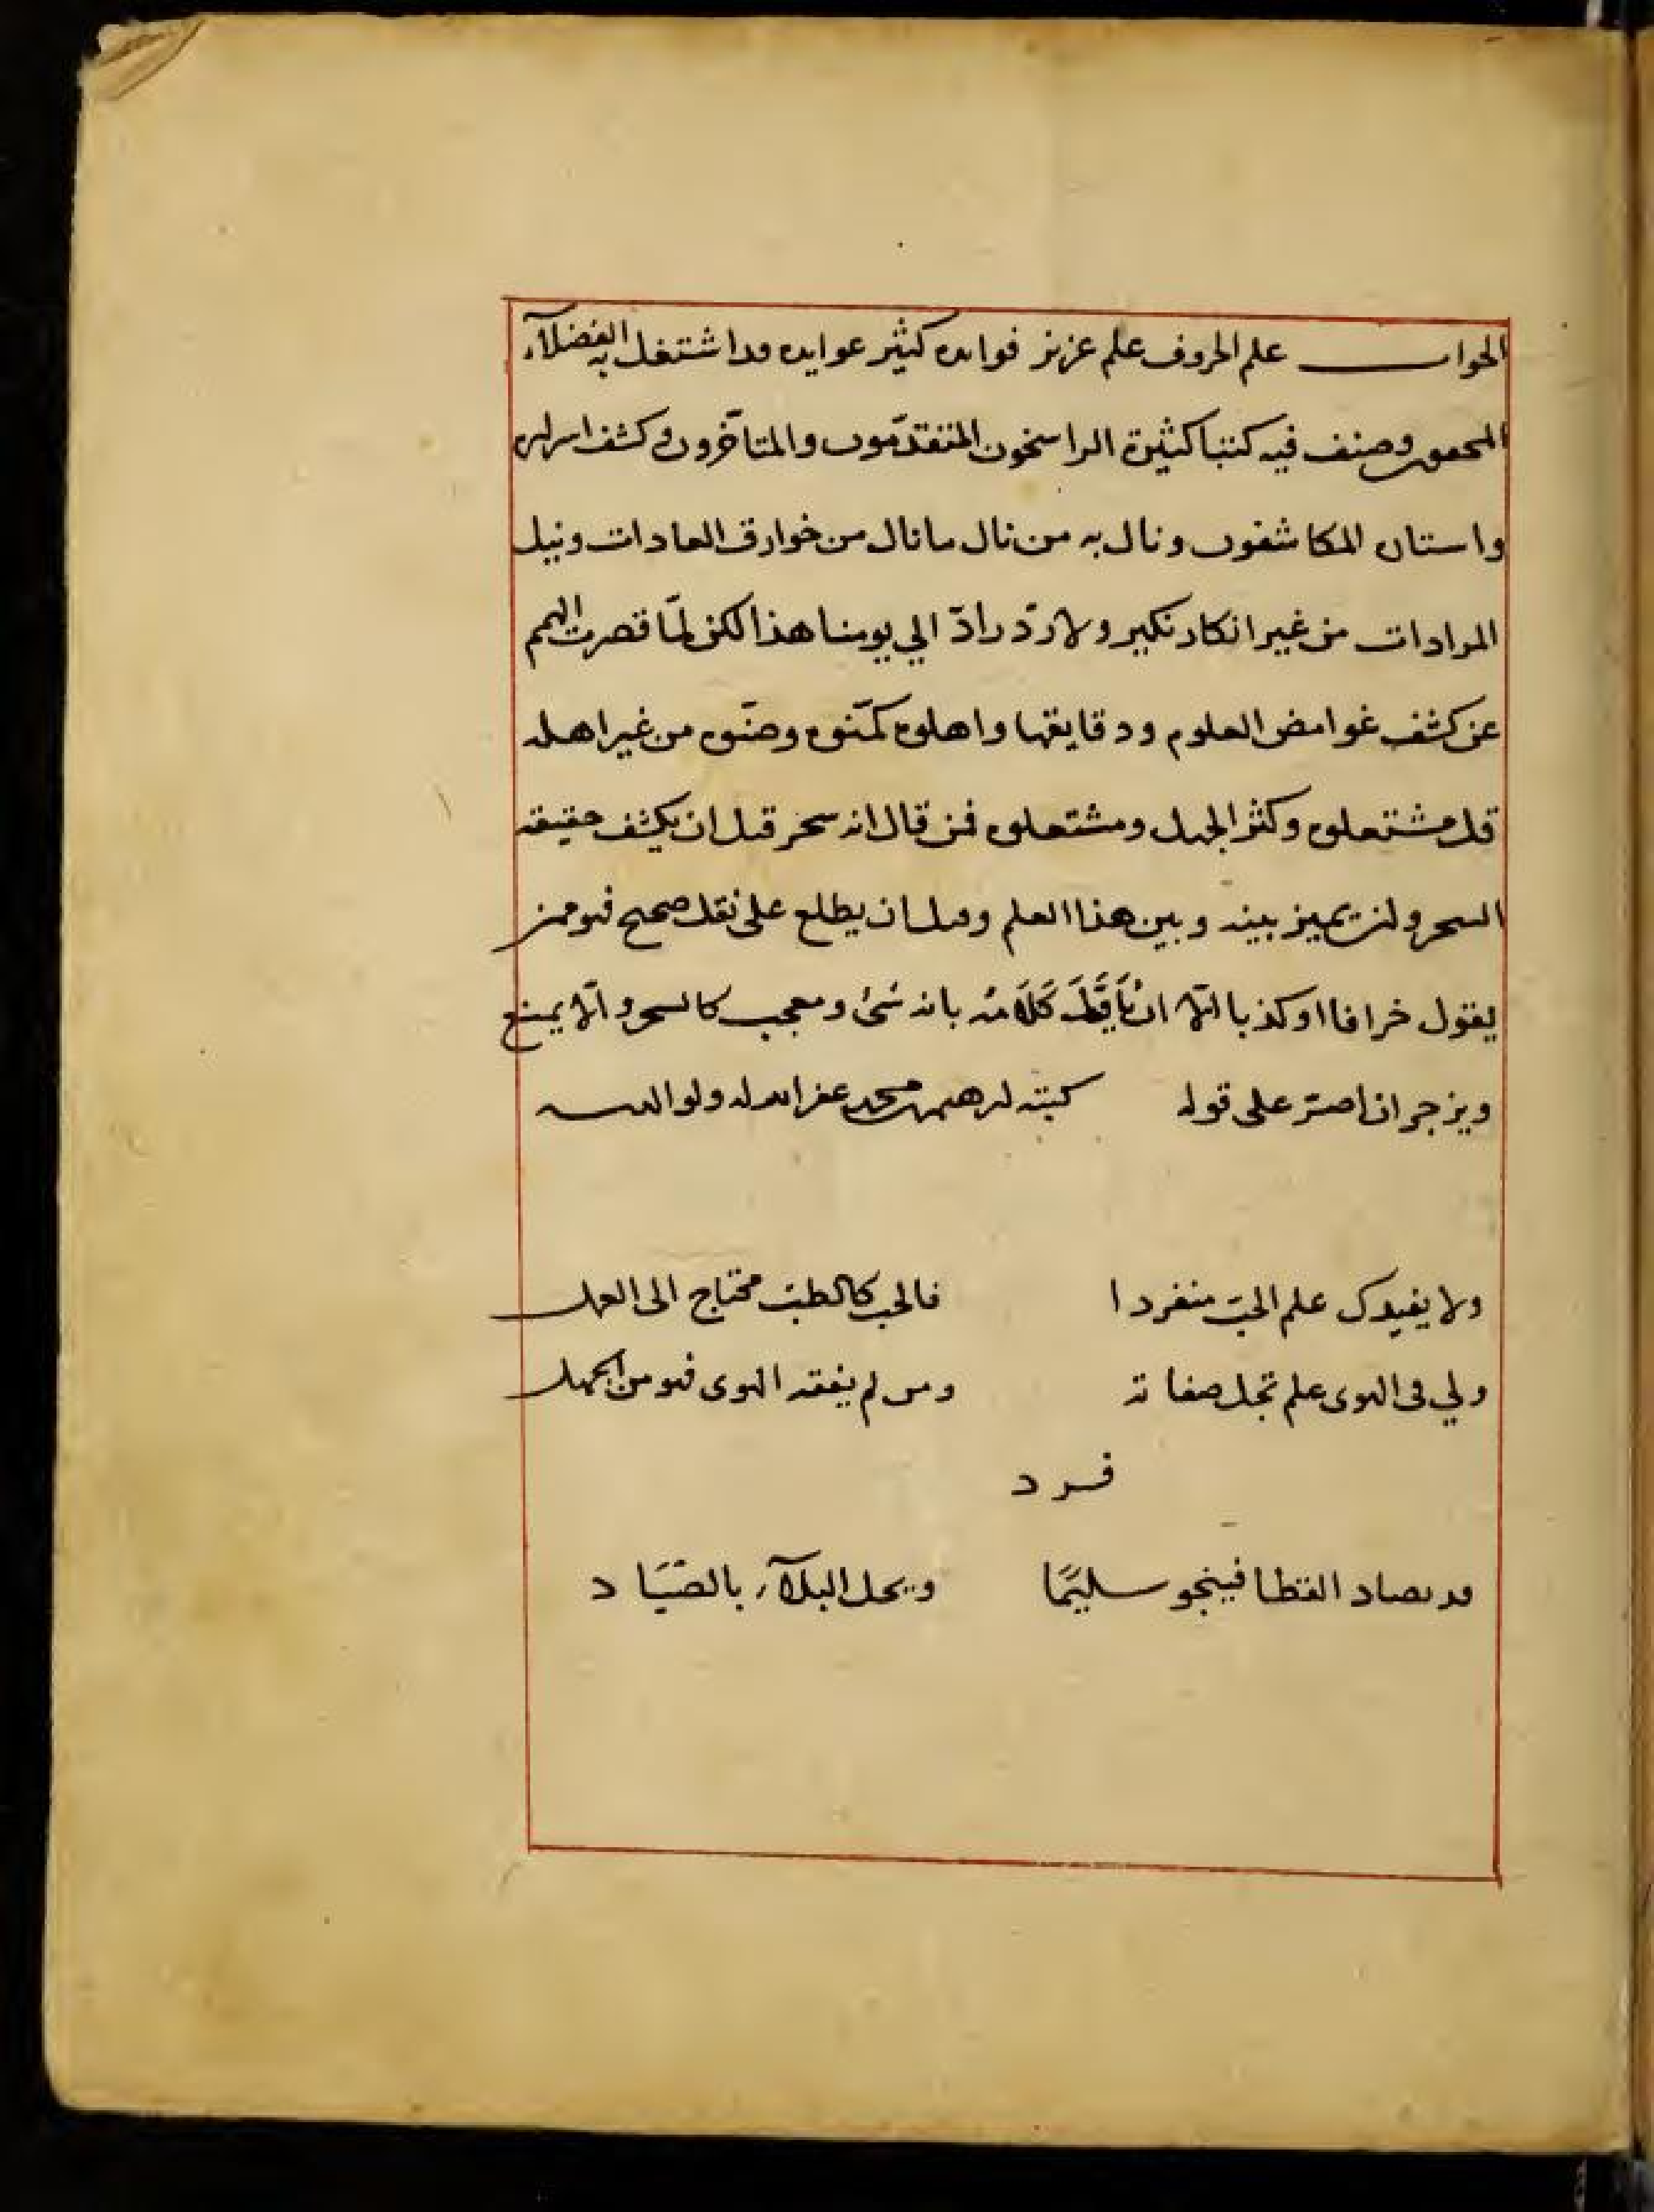 الجواب علم الحروف علم عزيز فوايده كثير عوايده قد اشتغل به الفضلآء
المحققون وصنف فيه كتبا كثيرة الراسخون المتقدّمون والمتأخرون وكشف اسراره
واستان المكاشفون ونال به من نال ما نال من خوارق العادات ونيل
المرادات من غير انكار نكير ولا ردّ رادّ الي يومنا هذا لكن لمّا قصرت الهمم
عن كشف غوامض العلوم ودقايقها واهلوه كتموه وضنّوه من غير اهله
قل مشتغلوه وكثر الجهل ومشتعلوه فمن قال انه سحر قبل ان يكشف حقيقة
السحر ولن يميز بينه وبين هذا العلم وقبل ان يطلع على نقل صحيح فهو ممن
يقول خرافا او كذبا اللّا ان كلامه بانه شئ ومعجب كالسحر والّا يمنع
ويزجر ان اصرّ على قوله كتبه محمد عفر الله له ولوالديه
ولا يفيدك علم الحبّ منفردا فالحب كالطبّ محتاج الى العمل
ولي فى الهوى علم تجل صفاته ومن لم يفقه الهوى فهو من الجهل
فرد
قد يصاد القطا فينجو سليمًا ويحل البلآء بالصّيَاد